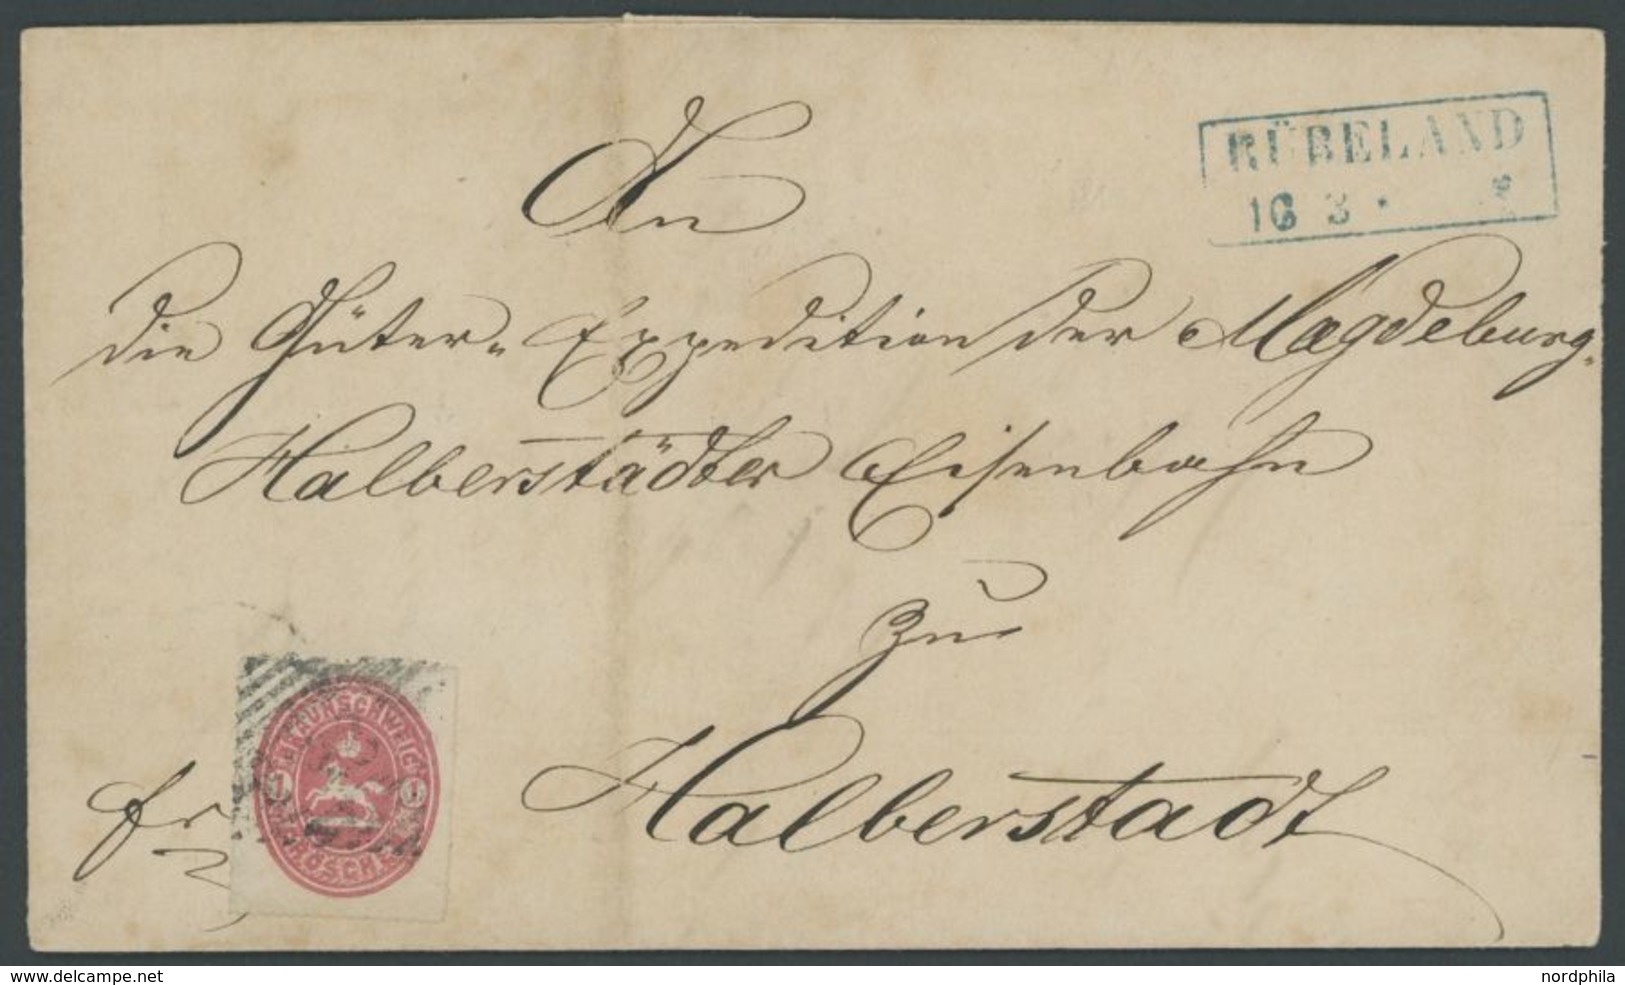 RÜBELAND
16 3 *
An
die Güter-Expedition der Magdeburg-
Halberstädter Eisenbahn
zu
Halberstadt
fr
BRAUNSCHWEIG
1 1
GROSCHEN
www.delcampe.net
nordphila